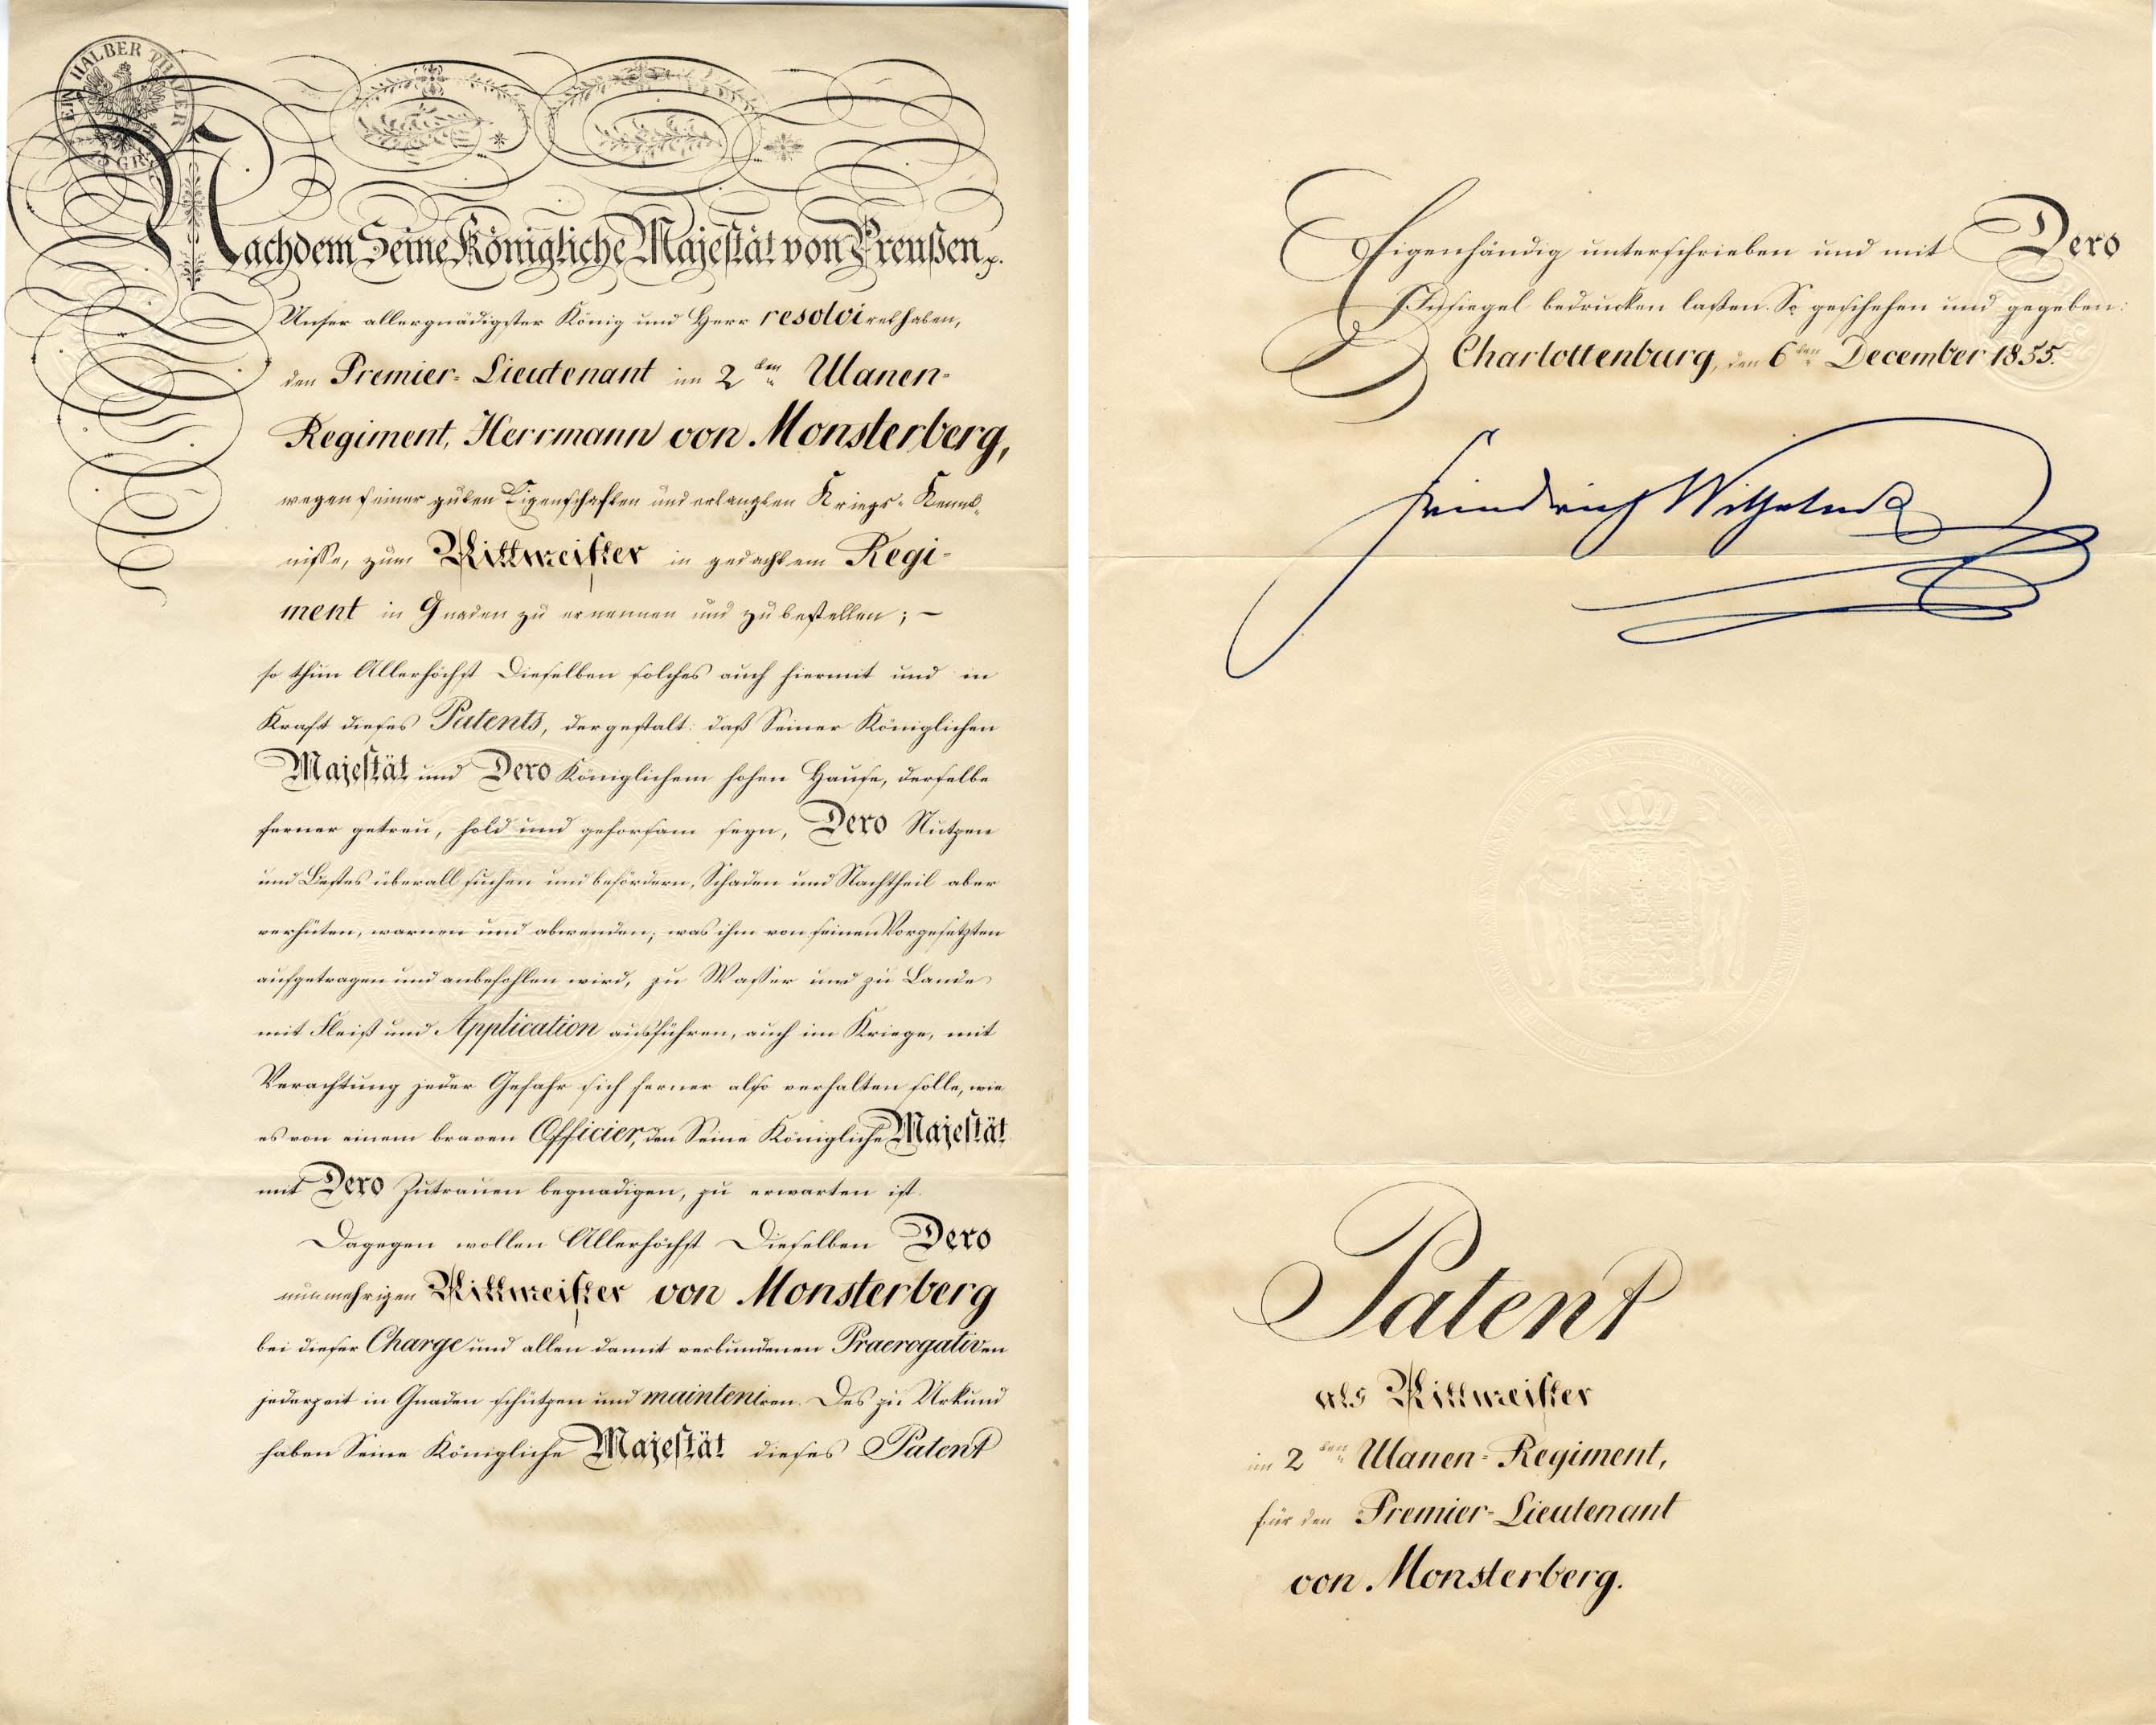 EIN HALBER THALER
GR
Nachdem Seine Königliche Majestät von Preußen p.
Unser allergnädigster König und Herr resolviret haben,
den Premier-Lieutenant im 2ten Ulanen-
Regiment, Herrmann von Monsterberg,
wegen seiner guten Eigenschaften und erlangten Kriegs-Kennt-
nisse, zum Rittmeister in gedachtem Regi-
ment in Gnaden zu ernennen und zu bestellen; —
so thun Allerhöchst Dieselben solches auch hiermit und in
Kraft dieses Patents, dergestalt: daß Seiner Königlichen
Majestät und Dero Königlichem hohen Hause, derselbe
ferner getreu, hold und gehorsam seyn, Dero Nutzen
und Bestes überall suchen und befördern, Schaden und Nachtheil aber
verhüten, warnen und abwenden; was ihm von seinen Vorgesetzten
aufgetragen und anbefohlen wird, zu Wasser und zu Lande
mit Fleiß und Application ausführen, auch im Kriege, mit
Verachtung jeder Gefahr sich ferner also verhalten solle, wie
es von einem braven Officier, den Seine Königliche Majestät
mit Dero Zutrauen begnadigen, zu erwarten ist.
Dagegen wollen Allerhöchst Dieselben Dero
nunmehrigen Rittmeister von Monsterberg
bei dieser Charge und allen damit verbundenen Praerogativen
jederzeit in Gnaden schützen und mainteniren. Des zu Urkund
haben Seine Königliche Majestät dieses Patent
Eigenhändig unterschrieben und mit Dero
Insiegel bedrucken laßen. So geschehen und gegeben:
Charlottenburg, den 6ten December 1855.
Friedrich Wilhelm
Patent
als Rittmeister
im 2ten Ulanen-Regiment,
für den Premier-Lieutenant
von Monsterberg.